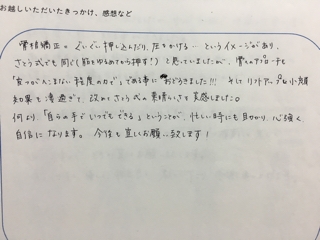 お越しいただいたきっかけ、感想など
骨格矯正。ぐいぐい押し込んだり、圧をかける…というイメージがあり、
さとう式でも同じ(筋をゆるめてから押す!)と思っていましたが、骨へのアプローチも
「皮フがへこまない程度の力で」である事におどろきました!!! そしてリフトアップも小顔
効果も凄過ぎて、改めてさとう式の素晴らしさを実感しました。
何より、「自らの手でいつでもできる」ということが、忙しい時にも助かり、心強く、
自信になります。今後も宜しくお願い致します!